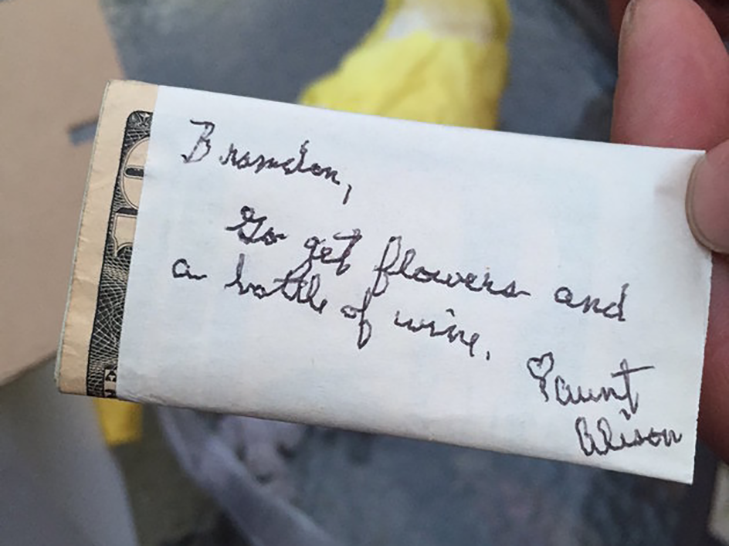 Brandon,
Go get flowers and
a bottle of wine.
♡ aunt
Alison
10